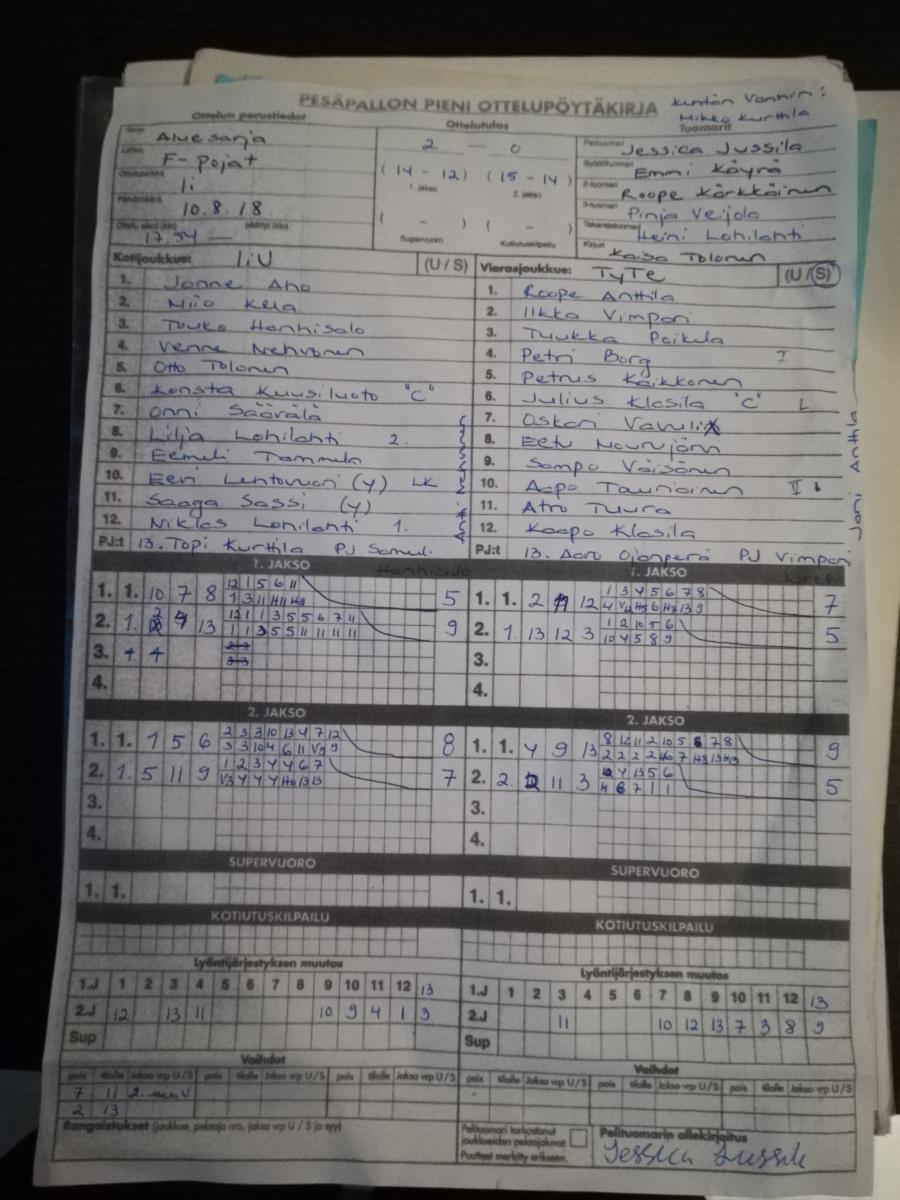 PESÄPALLON PIENI OTTELUPÖYTÄKIRJA
Kentän Vanhin:
Mikko Kurttila
Ottelun perustiedot
Ottelutulos
Tuomarit
Aluesarja
F-pojat
Ii
10.8.18
17.54 —
2 — 0
(14 - 12) (15 - 14)
1. jakso 2. jakso
( - ) ( - )
Supervuoro Kotiutuskilpailu
Pelituomari Jessica Jussila
Syöttötuomari Emmi Käyrä
2-tuomari Roope Kärkkäinen
3-tuomari Pinja Veijola
Takarajatuomari Heini Lohilahti
Kirjuri Kaisa Tolonen
Kotijoukkue: IiU (U / S)
1. Janne Aho
2. Miio Kela
3. Tuuka Hanhisalo
4. Venne Nehvonen
5. Otto Tolonen
6. Konsta Kuusiluoto "C"
7. Onni Säärälä
8. Lilja Lohilahti 2.
9. Eemeli Tammela
10. Eevi Lehtovuori (y) LK
11. Saaga Sassi (y)
12. Niklas Lohilahti 1.
PJ:t 13. Topi Kurttila PJ Samuli
Hanhisalo
Vierasjoukkue: TyTe (U / S)
1. Roope Anttila
2. Ilkka Vimpari
3. Tuukka Poikela
4. Petri Borg I
5. Petrus Kaikkonen
6. Julius Klasila "C" L
7. Oskari
8. Eetu Mourujärvi
9. Sampo Väisänen
10. Aapo Tauriainen II
11. Atro Tuura
12. Kaapo Klasila
PJ:t 13. Aaro Ojanperä PJ Vimpari
Jani Anttila
1. JAKSO
1. 1. 10 7 8 5
12 1 5 6 11
1 3 11 H11 H9
2. 1. 4 13 9
12 1 1 3 5 5 6 7 11
1 1 3 5 5 11 11 11 11
3. 4
4.
1. JAKSO
1. 1. 2 12 7
1 3 4 5 6 7 8
2. 1. 13 12 3 5
1 2 10 5 6
10 4 5 8 9
3.
4.
2. JAKSO
1. 1. 1 5 6 8
2 3 3 10 13 4 7 12
3 3 10 4 6 11 V9 9
2. 1. 5 11 9 7
1 2 3 4 4 6 7
V3 4 4 4 H6 13 13
3.
4.
2. JAKSO
1. 1. 4 9 13 9
8 12 11 2 10 5 6 7 8
2 2 2 2 H6 7 H8 13 H13
2. 2. 2 11 3 5
4 13 5 6
4 6 7 1 1
3.
4.
SUPERVUORO
1. 1.
SUPERVUORO
1. 1.
KOTIUTUSKILPAILU
KOTIUTUSKILPAILU
Lyöntijärjestyksen muutos
1.J 1 2 3 4 5 6 7 8 9 10 11 12 13
2.J 12 13 11 10 9 4 1 3
Sup
Lyöntijärjestyksen muutos
1.J 1 2 3 4 5 6 7 8 9 10 11 12 13
2.J 11 10 12 13 7 3 8 9
Sup
Vaihdot
pois tilalle Jakso vrp U / S pois tilalle Jakso vrp U / S pois tilalle Jakso vrp U / S
7 11 2. U
2 13
Vaihdot
pois tilalle Jakso vrp U / S pois tilalle Jakso vrp U / S pois tilalle Jakso vrp U / S
Rangaistukset (joukkue, pelaaja nro, jakso vrp U / S ja syy)
Pelituomari tarkastanut
joukkueiden pelaajaluvat.
Puutteet merkitty erikseen.
Pelituomarin allekirjoitus
Jessica Jussila